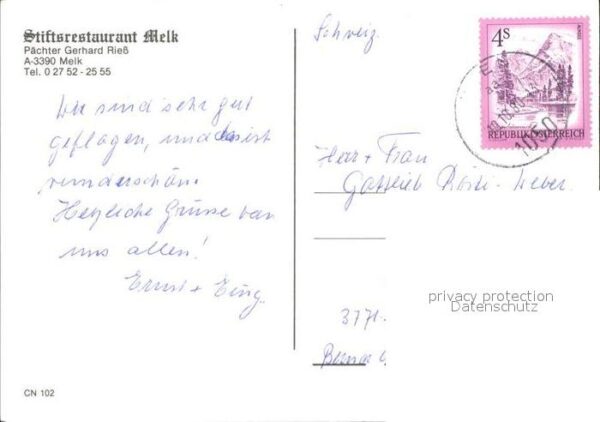 Stiftsrestaurant Melk
Pächter Gerhard Rieß
A-3390 Melk
Tel. 0 27 52 - 25 55
Wir sind sehr gut
geflogen, und das ist
wunderschön
Herzliche Grüsse von
uns allen!
Ernst +
CN 102
Schweiz
4S
REPUBLIK ÖSTERREICH
Herr + Frau
Gottlieb Rösti-Weber
privacy protection
Datenschutz